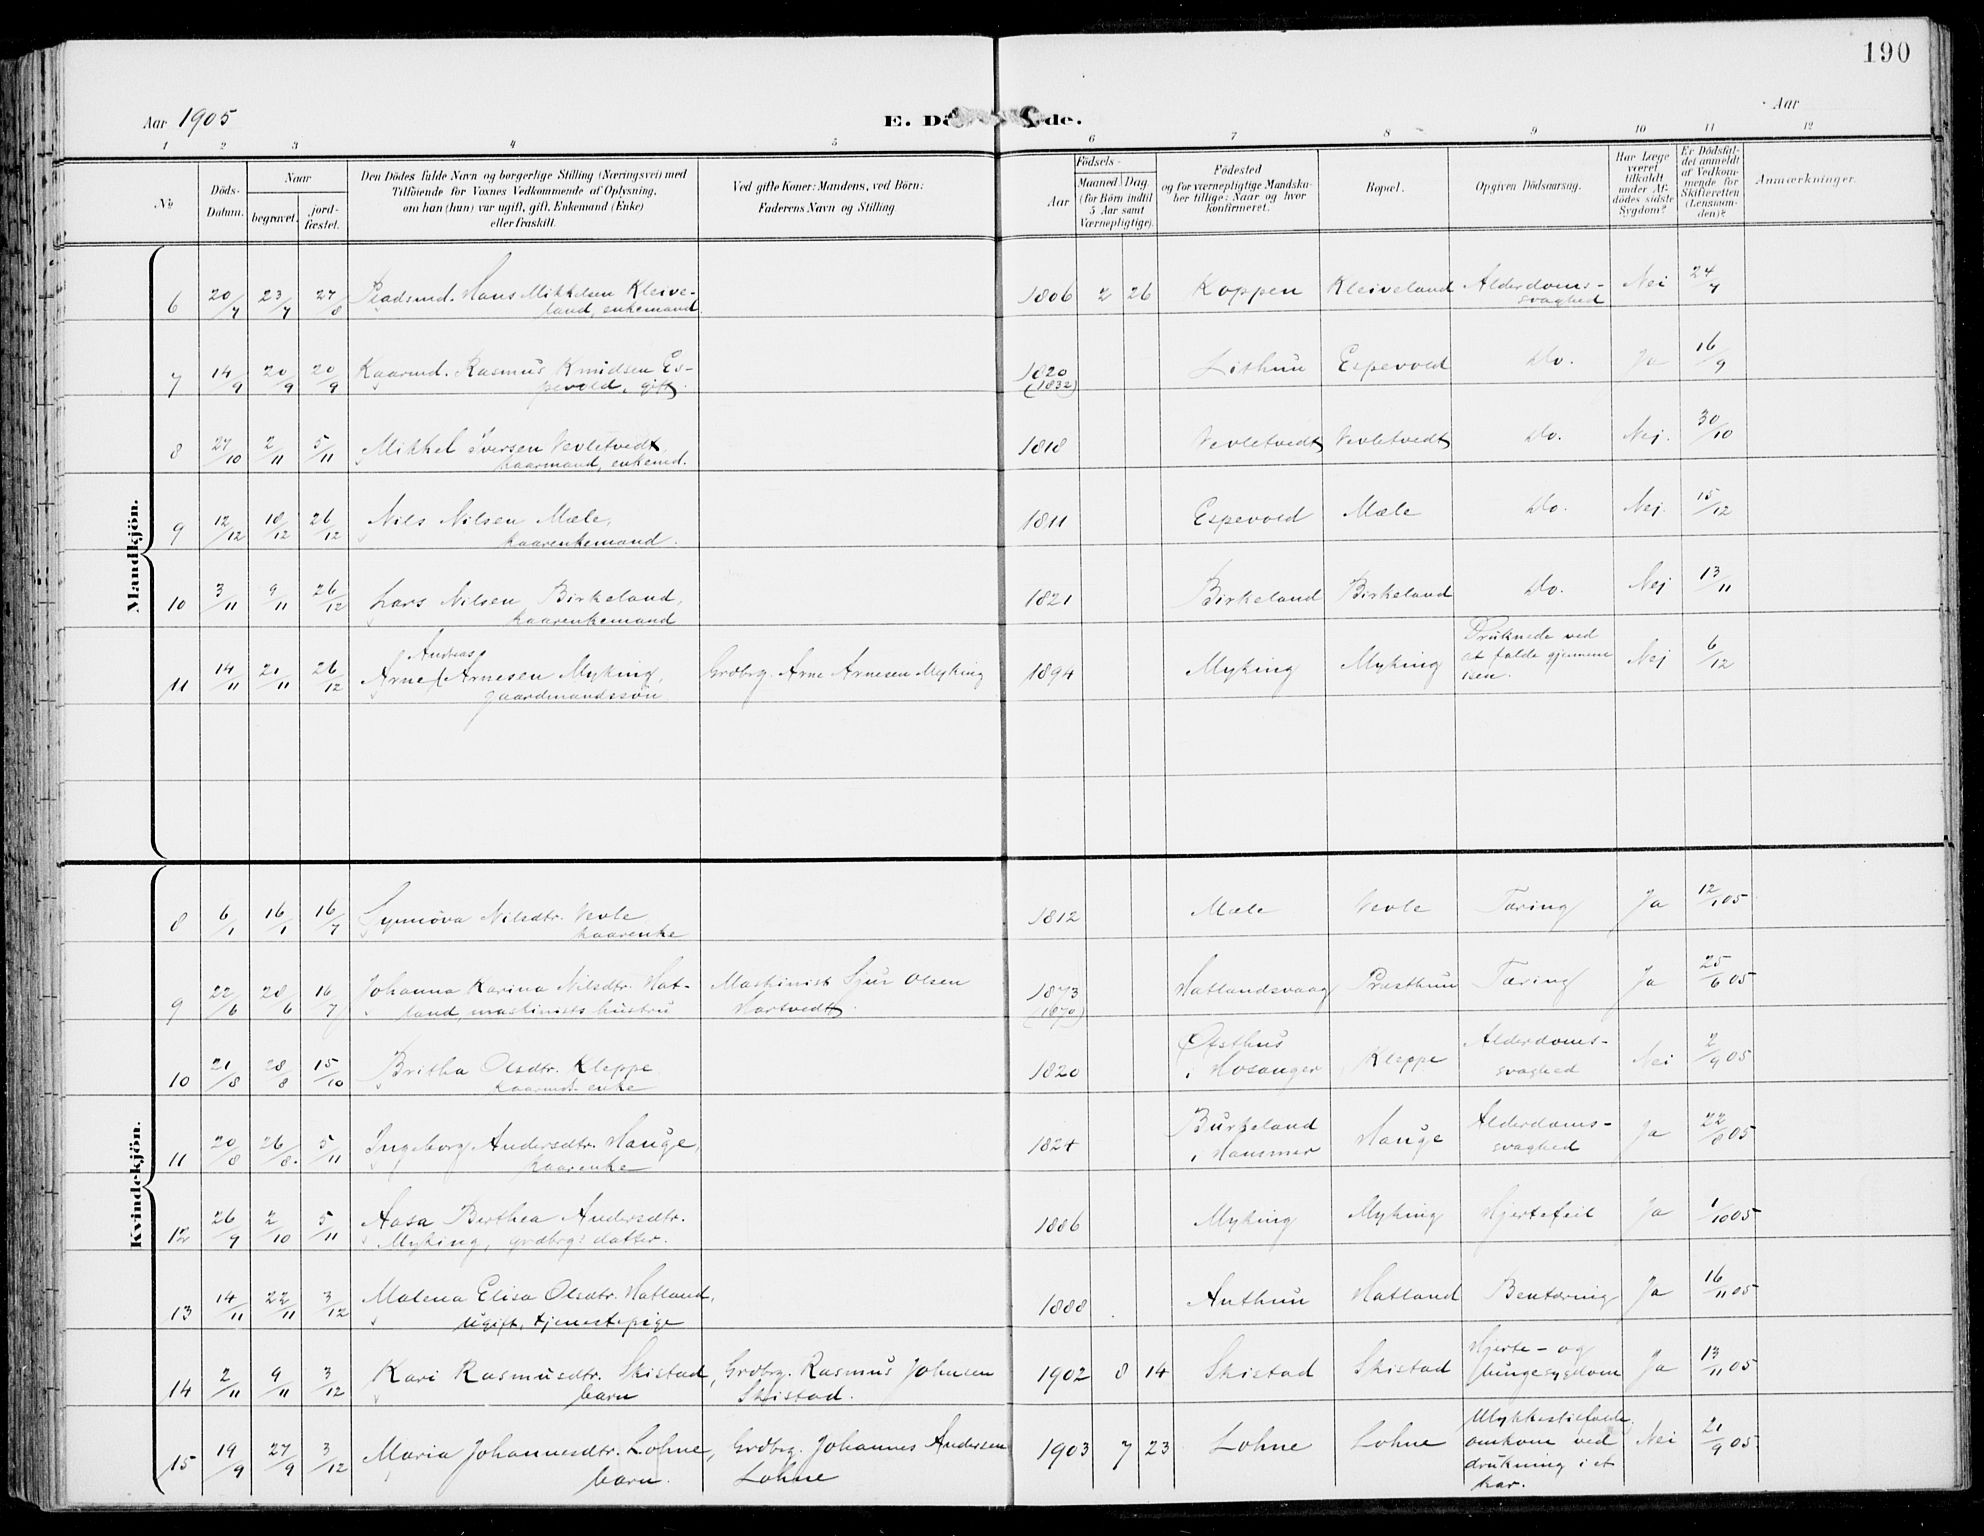 190
Aar 1905
E. Dö de.
Aar
1 2 3 4 5 6 7 8 9 10 11 12
No
Döds-Datum.
Naar
begravet.
jord-fæstet.
Den Dödes fulde Navn og borgerlige Stilling (Næringsvei) med
Tilföiende for Voxnes Vedkommende af Oplysning,
om han (hun) var ugift, gift, Enkemand (Enke)
eller fraskilt.
Ved gifte Koner: Mandens, ved Börn:
Faderens Navn og Stilling.
Födsels-
Aar
Maaned. Dag.
(for Börn indtil
5 Aar samt
Værnepligtige).
Födested
og for værnepligtige Mandska-
ber tillige: Naar og hvor
konfirmeret.
Bopæl.
Opgiven Dödsaarsag.
Har Læge
været
tilkaldt
under Af-
dödes sidste
Sygdom?
Er Dödsfal-
det anmeldt
af Vedkom-
mende for
Skifteretten
(Lensman-
den)?
Anmærkninger.
Mandkjön.
6 20/7 23/7 27/8 Pladsmd. Hans Mikkelsen Kleive-
land, enkemand. 1806 2 26 Koppen Kleiveland Alderdoms-
svaghed Nei 24/7
7 14/9 20/9 20/9 Kaarmd. Rasmus Knudsen Es-
pevold, gift. 1820
(1832) Lithun Espevold do. Ja 16/9
8 27/10 2/11 5/11 Mikkel Iversen Vevletvedt,
kaarmand, enkemd. 1818 Vevletvedt Vevletvedt do. Nej. 30/10
9 12/12 18/12 26/12 Nils Nilsen Mæle,
kaarenkemand. 1811 Espevold Mæle do. Nej. 15/12
10 3/11 9/11 26/12 Lars Nilsen Birkeland,
kaarenkemand 1821 Birkeland Birkeland do. Nej 13/11
Andreas
11 14/11 21/11 26/12 Arne Arnesen Myking,
gaardmandssøn Grdbrg. Arne Arnesen Myking 1894 Myking Myking Druknede ved
at falde gjennem
isen. Nej 6/12
Kvindekjön.
8 6/1 16/1 16/7 Synnøva Nilsdtr. Vevle
kaarenke 1812 Mæle Vevle Tæring Ja 12/1 05
9 22/6 28/6 16/7 Johanna Karina Nilsdtr. Hat-
land, maskinists hustru Maskinist Sjur Olsen
Hartvedt. 1873
(1870) Hatlandsvaag Præsthun Tæring Ja 25/6 05
10 21/8 28/8 15/10 Britha Olsdtr. Kleppe,
kaarmds. enke 1820 Østhus
i Hosanger Kleppe Alderdoms-
svaghed Nei 2/9 05
11 20/8 26/8. 5/11 Ingeborg Andersdtr. Hauge,
kaarenke 1824 Burkeland
i Hammer Hauge Alderdoms-
svaghed Ja 22/8 05
12 26/9 2/10 5/11 Aasa Berthea Andersdtr.
Myking, grdbrgs datter. 1886 Myking Myking Hjertefeil Ja 1/10 05
13 14/11 22/11 3/12 Malena Elisa Olsdtr. Hatland,
ugift, tjenestepige 1888 Anthun Hatland Bentæring Ja 16/11 05
14 2/11 9/11 3/12 Kari Rasmusdtr. Skistad,
barn Grdbrg. Rasmus Johnsen
Skistad. 1902 8 14 Skistad Skistad Hjerte- og
lungesygdom Ja 13/11 05
15 19/9 27/9 3/12 Maria Johannesdtr. Lohne,
barn. Grdbrg. Johannes Andersen
Lohne 1903 7 23 Lohne Lohne Ulykkestilfælde,
omkom ved
drukning i et
kar. Nei 21/9 05